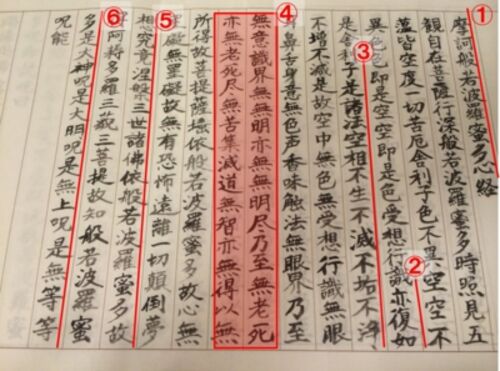 ①
摩訶般若波羅蜜多心経
観自在菩薩行深般若波羅蜜多時照見五
蘊皆空度一切苦厄舎利子色不異空空不
②
異色色即是空空即是色受想行識亦復如
③
是舎利子是諸法空相不生不滅不垢不浄
不増不減是故空中無色無受想行識無眼
耳鼻舌身意無色声香味触法無眼界乃至
④
無意識界無無明亦無無明尽乃至無老死
亦無老死尽無苦集滅道無智亦無得以無
所得故菩提薩埵依般若波羅蜜多故心無
⑤
罣礙無罣礙故無有恐怖遠離一切顛倒夢
想究竟涅槃三世諸佛依般若波羅蜜多故
⑥
阿耨多羅三藐三菩提故知般若波羅蜜
多是大神呪是大明呪是無上呪是無等等
呪能